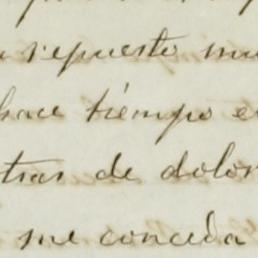 repuesto mu
hace tiempo e
tras de dolor
me conceda